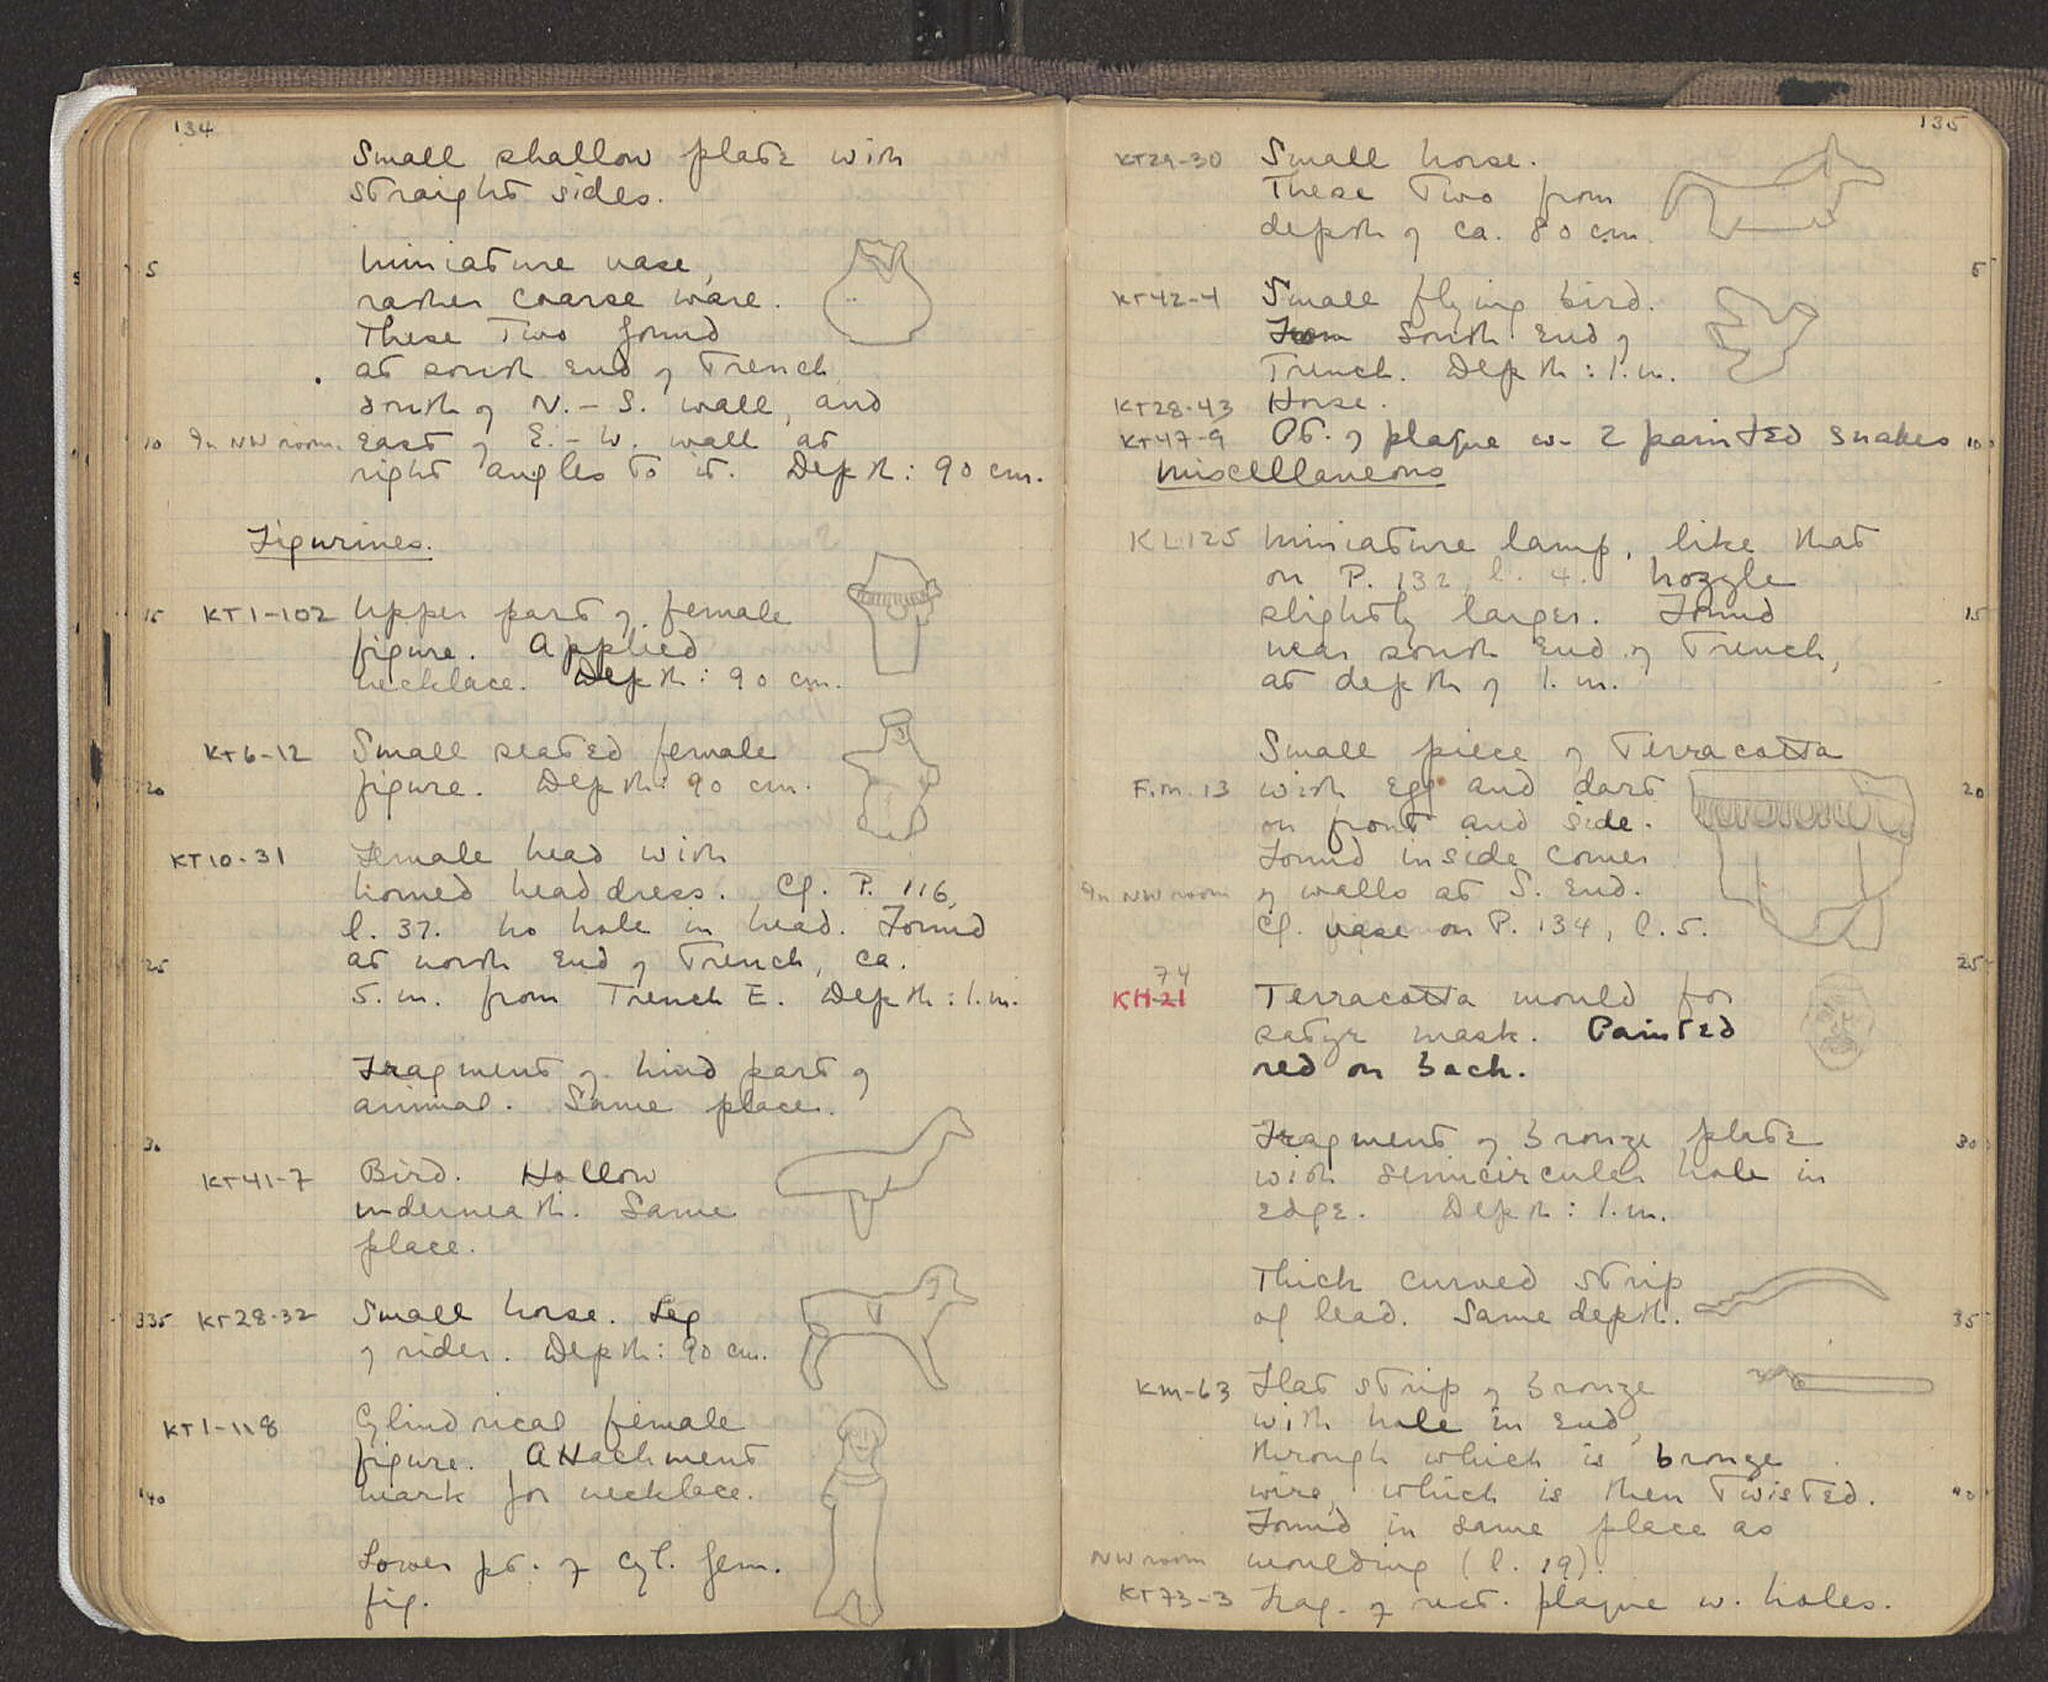 134
Small shallow plate with
straight sides.
5 Miniature vase,
rather coarse ware.
These two found
at south end of Trench
south of N.-S. wall, and
10 In NW room. East of E.-W. wall at
right angles to it. Depth: 90 cm.
Figurines.
15 KT1-102 Upper part of female
figure. Applied
necklace. Depth: 90 cm.
KT6-12 Small seated female
20 figure. Depth: 90 cm.
KT10-31 Female head with
horned headdress. Cf. P. 116,
l. 37. No hole in head. Found
25 at north end of Trench, ca.
5. m. from Trench E. Depth: 1. m.
Fragment of hind part of
animal. Same place.
30
KT41-7 Bird. Hollow
underneath. Same
place.
35 KT28-32 Small horse. Leg
of rider. Depth: 90 cm.
KT1-118 Cylindrical female
figure. Attachment
40 mark for necklace.
Lower pt. of cyl. fem.
fig.
135
KT29-30 Small horse.
These two from
depth of ca. 80 cm.
5
KT42-4 Small flying bird.
From South End of
Trench. Depth: 1. m.
KT28-43 Horse.
KT47-9 Pt. of plaque w- 2 painted snakes 10
Miscelllaneous
KL125 Miniature lamp, like that
on P. 132, l. 4. Nozzle
slightly larger. Found 15
near south end of Trench,
at depth of 1. m.
Small piece of Terracotta
F.m. 13 with egg and dart 20
on front and side.
Found inside corner
In NW room of walls at S. End.
Cf. vase on P. 134, l. 5.
25
74
KH-21 Terracotta mould for
satyr mask. Painted
red on back.
Fragment of bronze plate 30
with semicircular hole in
edge. Depth: 1. m.
Thick curved strip
of lead. Same depth. 35
KM-63 Flat strip of bronze
with hole in end,
through which is bronze
wire, which is then twisted. 40
Found in same place as
NW room moulding (l. 19).
KT73-3 Frag. of rect. plaque w. holes.